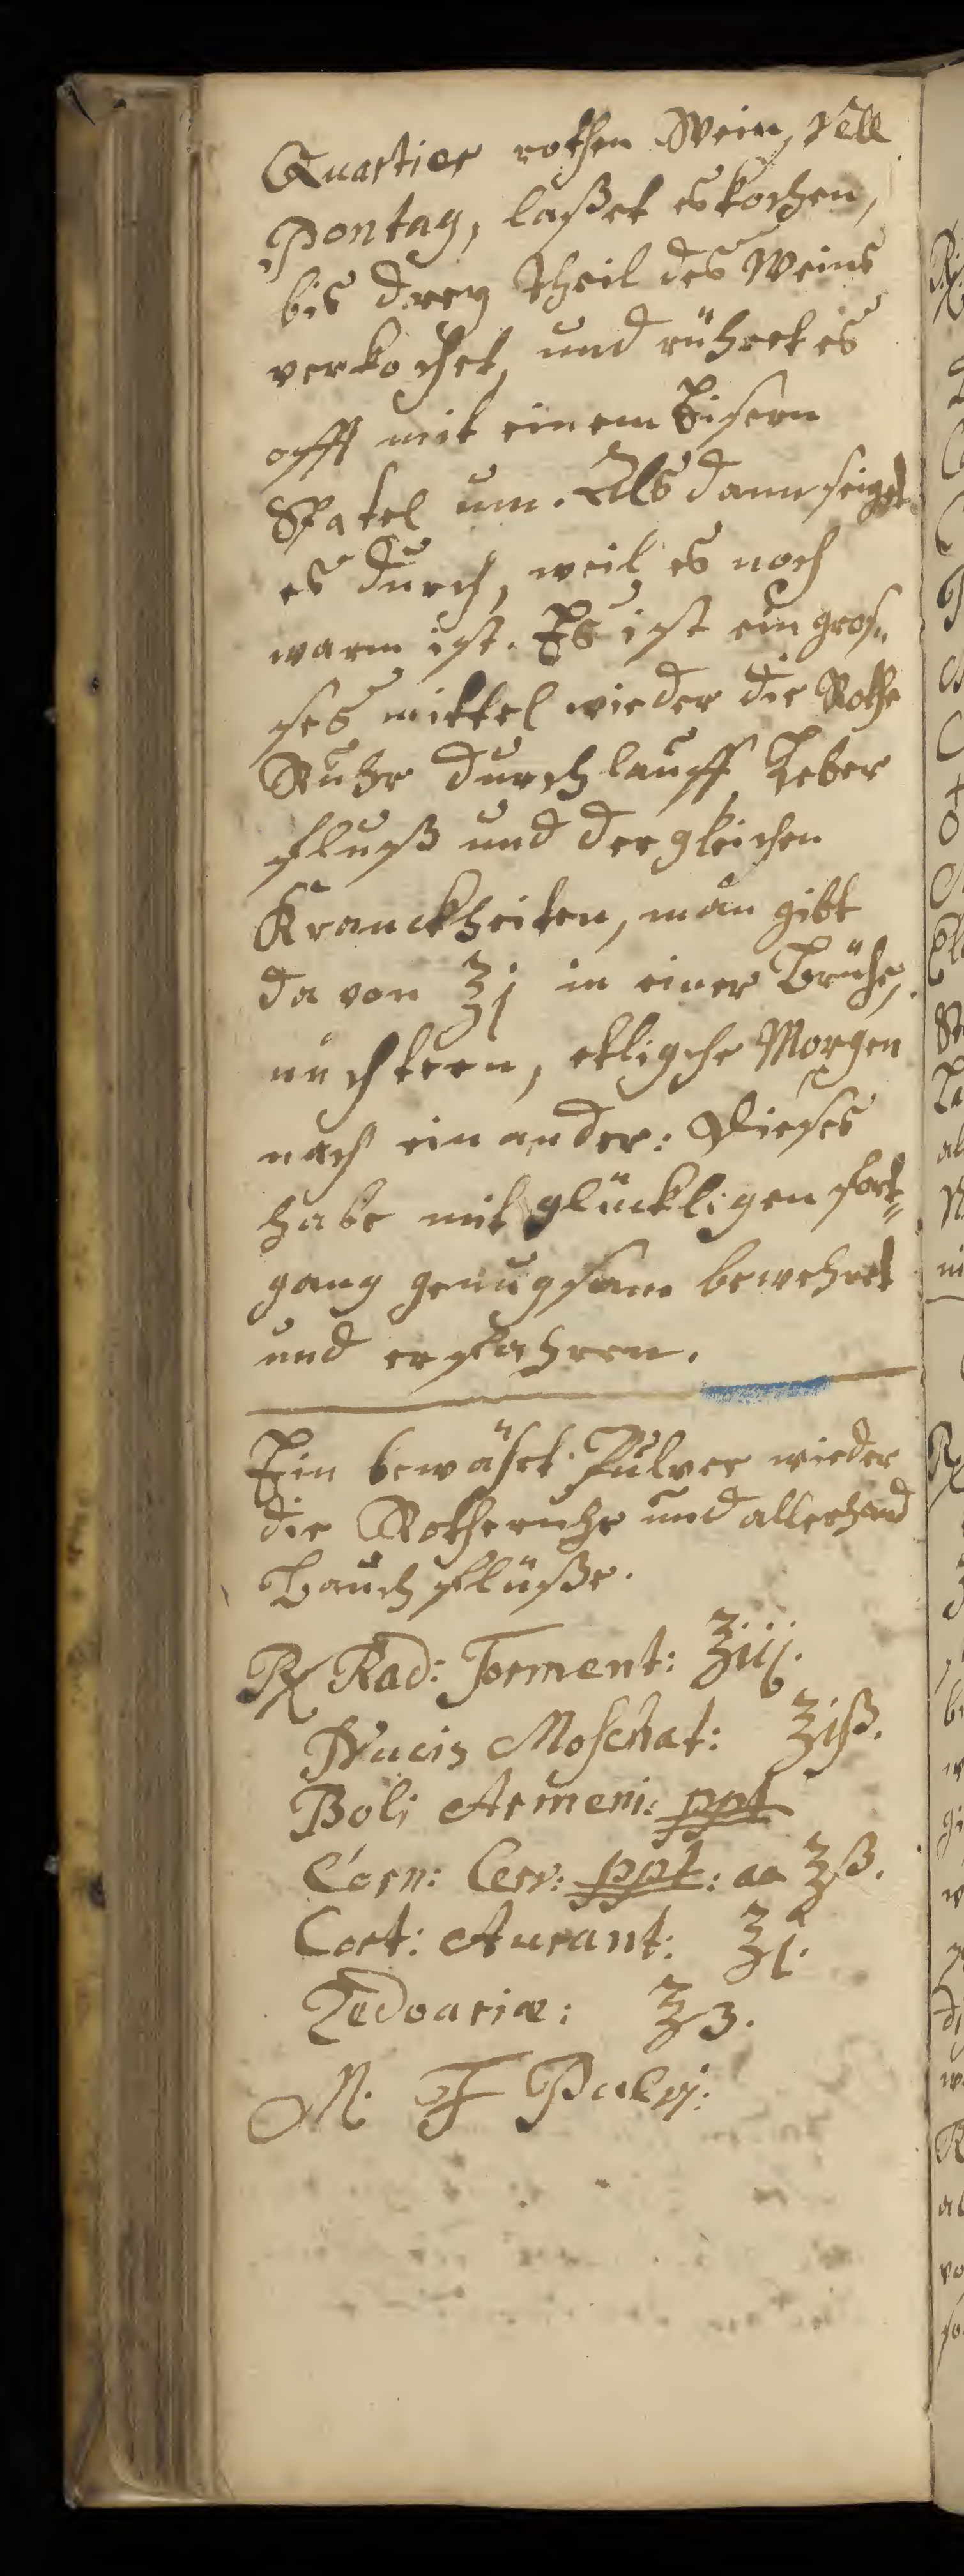 Quartier rothen Wein, Vell
Pontag, laßet es kochen,
bis drey theil des Weins
verkochet, und rühret es
offt mit einem Eisern
Spatel um. Als dann seiget
es durch, weil es noch
warm ist. Es ist ein gros„
ses mittel wieder die Rothe
Ruhr durchlauff Leber
fluß und dergleichen
Kranckheiten, man gibt
da von ʒj in einer Brühe,
nüchtern, etligche Morgen
nach ein ander: Dieses
habe mit glückligen fort„
gang genugsam bewehret
und erfahren.
Ein bewäret Pulver wieder
die Rotheruhr und allerhand
Bauch flüße.
℞ Rad: Torment: ʒiij.
Nucis Moschat: ʒiß.
Boli Armeni: ppt
Corn: Cerv: ppt: aa ʒß.
Cort: Aurant: ʒj.
Zedoariæ: ʒß.
M. F Pulvj: